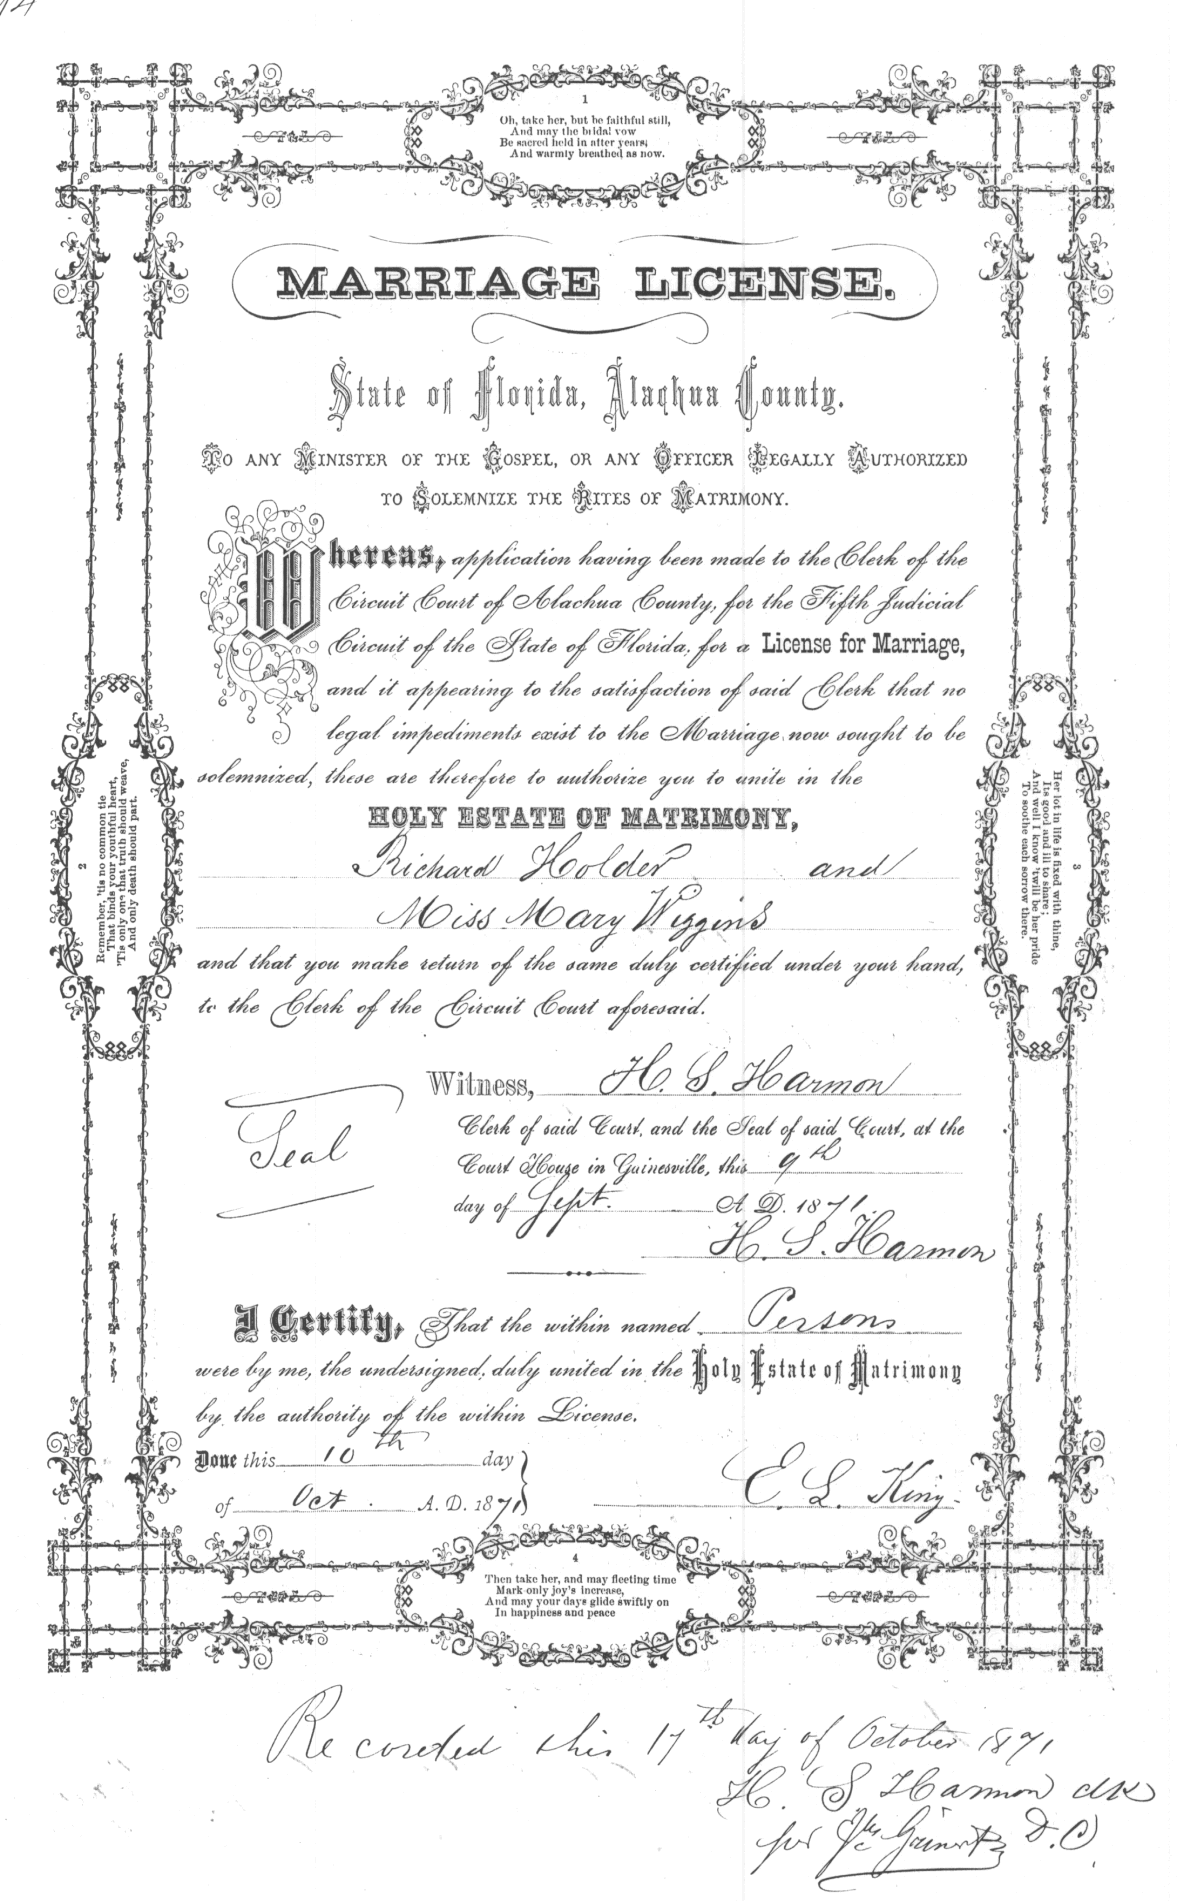 1
Oh, take her, but be faithful still,
And may the bridal vow
Be sacred held in after years;
And warmly breathed as now.
MARRIAGE LICENSE.
State of Florida, Alachua County.
TO ANY MINISTER OF THE GOSPEL, OR ANY OFFICER LEGALLY AUTHORIZED
TO SOLEMNIZE THE RITES OF MATRIMONY.
Whereas, application having been made to the Clerk of the
Circuit Court of Alachua County, for the Fifth Judicial
Circuit of the State of Florida, for a License for Marriage,
and it appearing to the satisfaction of said Clerk that no
legal impediments exist to the Marriage now sought to be
solemnized, these are therefore to authorize you to unite in the
HOLY ESTATE OF MATRIMONY,
Richard Holder and
Miss Mary Wiggins
and that you make return of the same duly certified under your hand,
to the Clerk of the Circuit Court aforesaid.
2
Remember, 'tis no common tie
That binds your youthful heart,
'Tis only one that truth should weave,
And only death should part.
3
Her lot in life is fixed with thine,
Its good and ill to share;
And well I know 'twill be her pride
To soothe each sorrow there.
Witness, H. S. Harmon
Seal
Clerk of said Court, and the Seal of said Court, at the
Court House in Gainesville, this 9th
day of Sept. A. D. 1871.
H. S. Harmon
I Certify, That the within named Persons
were by me, the undersigned, duly united in the Holy Estate of Matrimony
by the authority of the within License.
Done this 10th day
of Oct. A. D. 1871
E. L. King.
4
Then take her, and may fleeting time
Mark only joy's increase,
And may your days glide swiftly on
In happiness and peace
Recorded this 17th day of October 1871
H. S Harmon clk
per D.C.